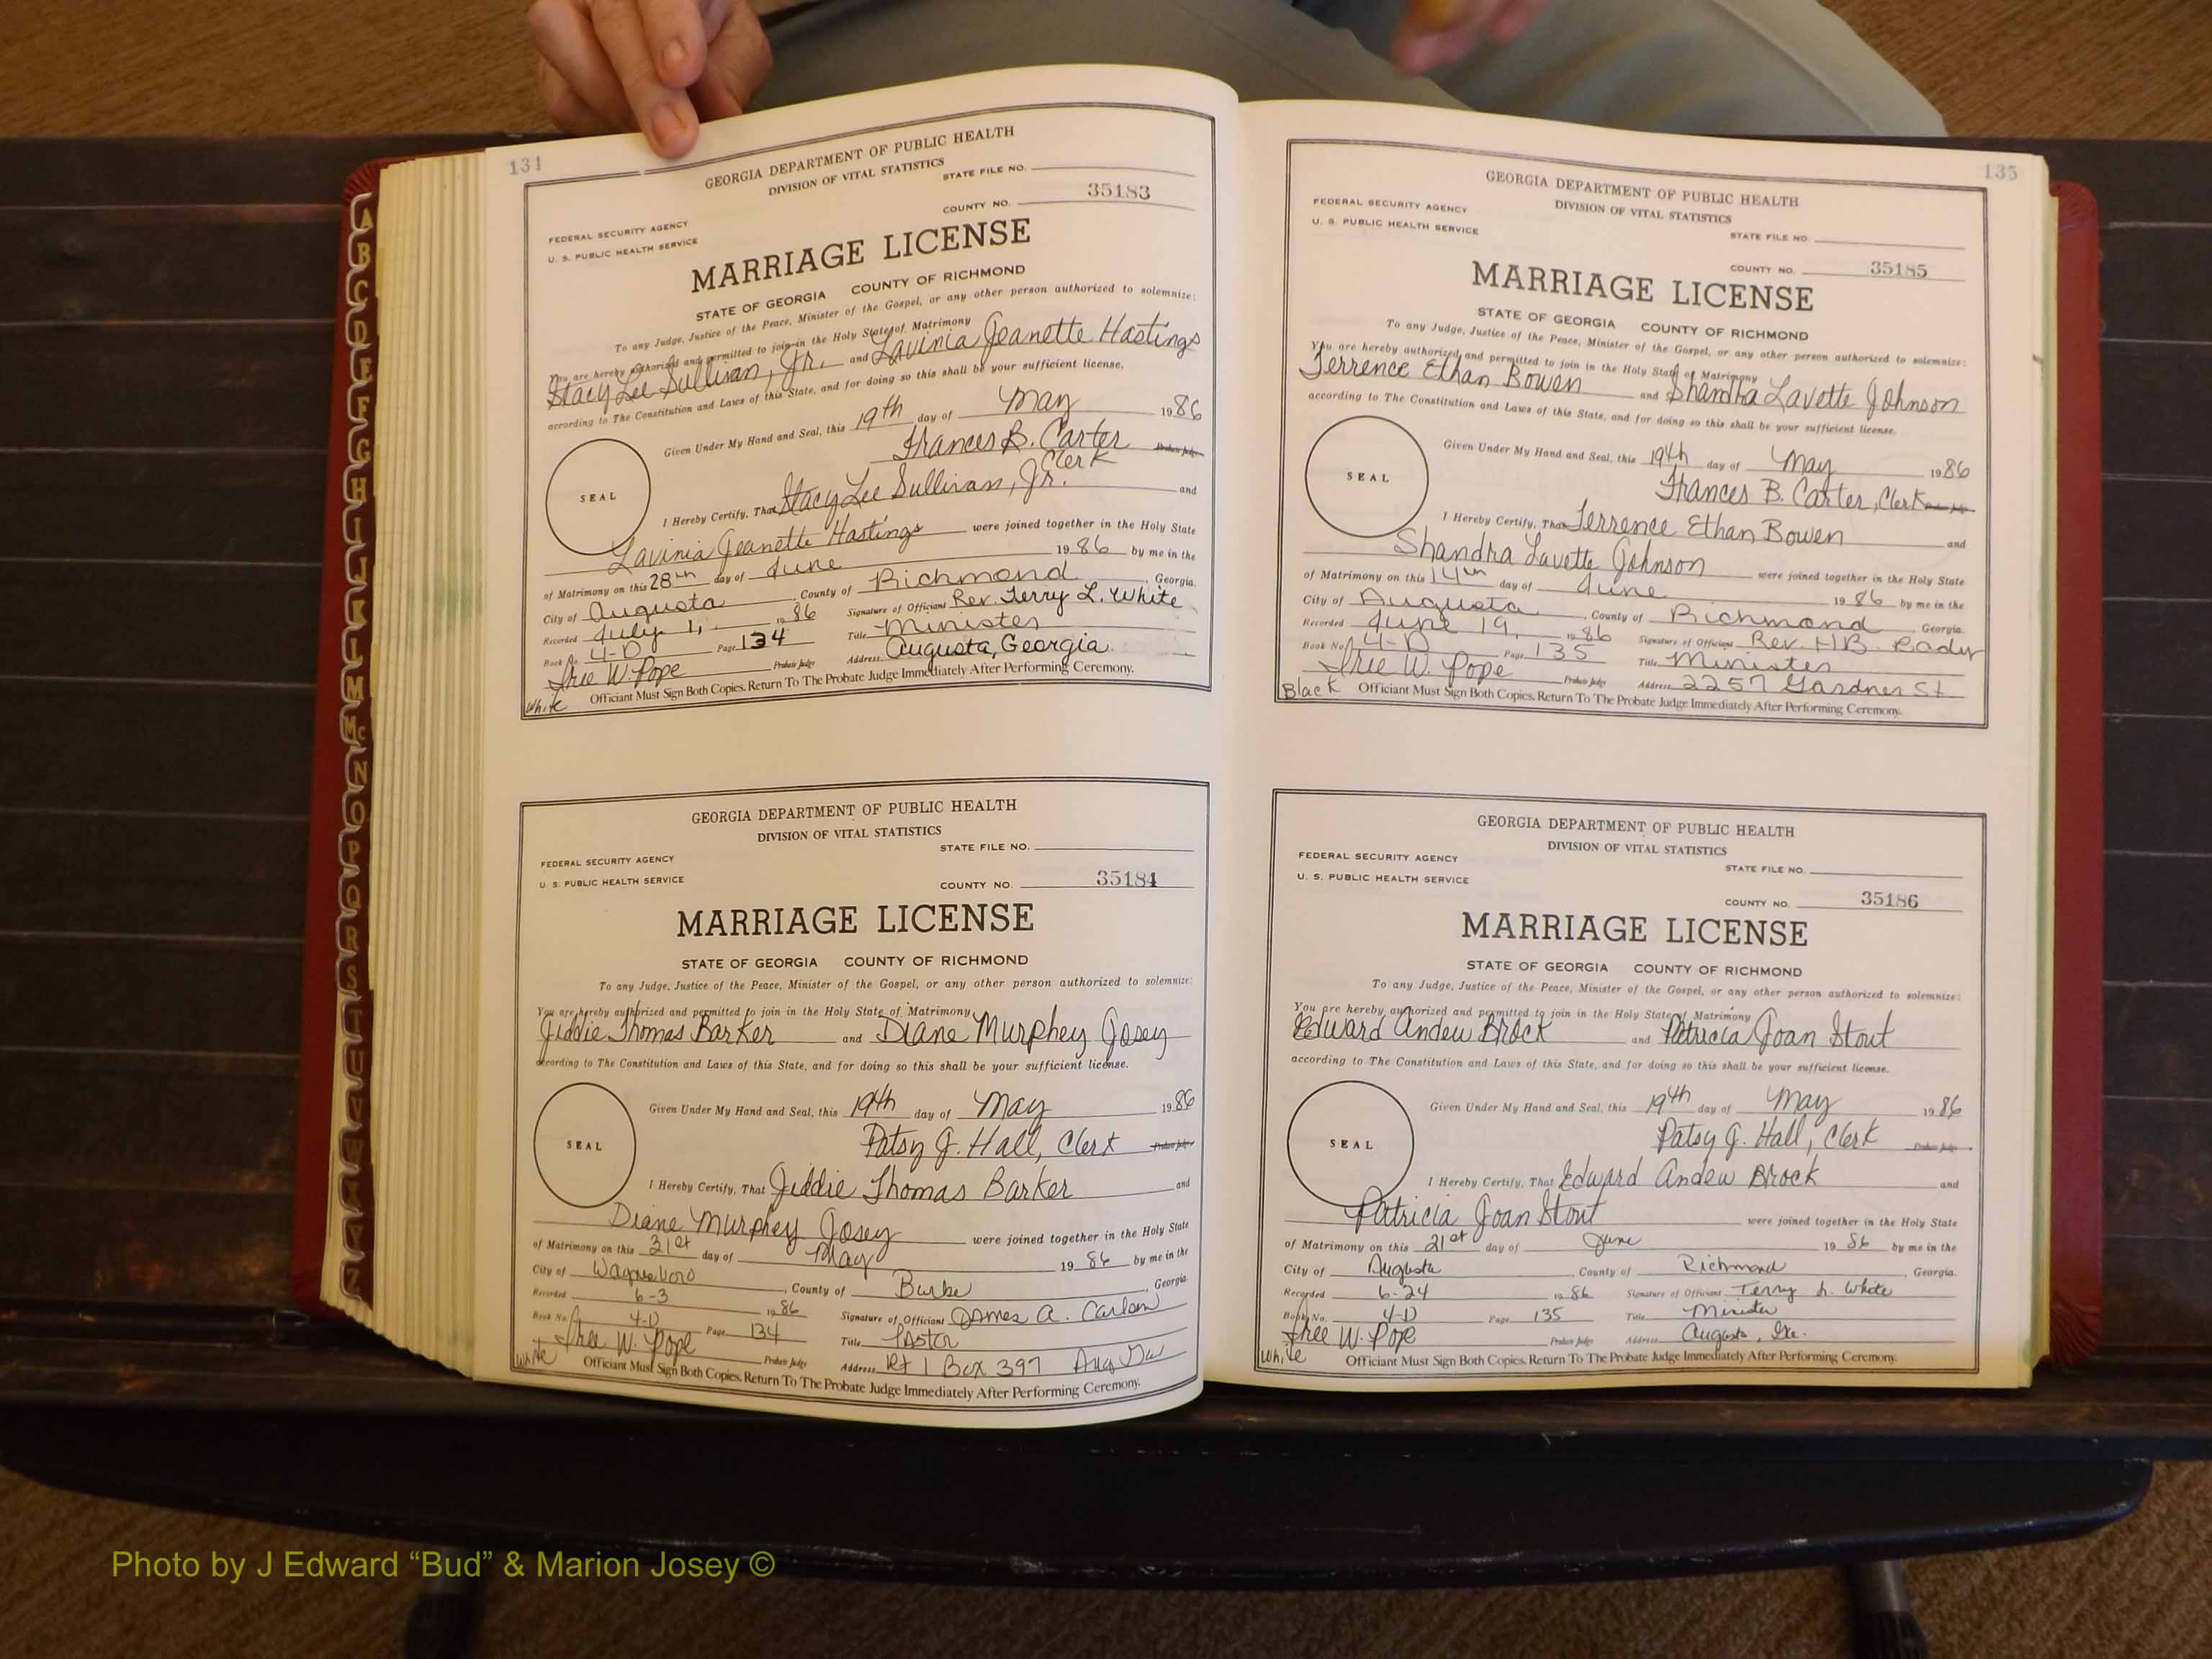 134
GEORGIA DEPARTMENT OF PUBLIC HEALTH
DIVISION OF VITAL STATISTICS
STATE FILE NO.
35183
COUNTY NO.
FEDERAL SECURITY AGENCY
U. S. PUBLIC HEALTH SERVICE
MARRIAGE LICENSE
STATE OF GEORGIA COUNTY OF RICHMOND
To any Judge, Justice of the Peace, Minister of the Gospel, or any other person authorized to solemnize:
You are hereby authorized and permitted to join in the Holy State of Matrimony
Stacy Lee Sullivan, Jr. and Lavinia Jeanette Hastings
according to The Constitution and Laws of this State, and for doing so this shall be your sufficient license.
Given Under My Hand and Seal, this 19th day of May 1986
Frances B. Carter Probate Judge
Clerk
SEAL
I Hereby Certify, That Stacy Lee Sullivan, Jr. and
Lavinia Jeanette Hastings were joined together in the Holy State
of Matrimony on this 28th day of June 1986 by me in the
City of Augusta, County of Richmond, Georgia.
Recorded July 1, 1986 Signature of Officiant Rev. Terry L. White
Book No. 4-D Page 134 Title Minister
Iree W. Pope Probate Judge Address Augusta, Georgia
White Officiant Must Sign Both Copies. Return To The Probate Judge Immediately After Performing Ceremony.
GEORGIA DEPARTMENT OF PUBLIC HEALTH
DIVISION OF VITAL STATISTICS
STATE FILE NO.
FEDERAL SECURITY AGENCY
U. S. PUBLIC HEALTH SERVICE
COUNTY NO. 35184
MARRIAGE LICENSE
STATE OF GEORGIA COUNTY OF RICHMOND
To any Judge, Justice of the Peace, Minister of the Gospel, or any other person authorized to solemnize:
You are hereby authorized and permitted to join in the Holy State of Matrimony
Jiddie Thomas Barker and Diane Murphey Josey
according to The Constitution and Laws of this State, and for doing so this shall be your sufficient license.
Given Under My Hand and Seal, this 19th day of May 1986
Patsy J. Hall, Clerk Probate Judge
SEAL
I Hereby Certify, That Jiddie Thomas Barker and
Diane Murphey Josey were joined together in the Holy State
of Matrimony on this 31st day of May 1986 by me in the
City of Waynesboro, County of Burke, Georgia.
Recorded 6-3 1986 Signature of Officiant James A.
Book No. 4-D Page 134 Title Pastor
Iree W. Pope Probate Judge Address Rt 1 Box 397 Aug
White Officiant Must Sign Both Copies. Return To The Probate Judge Immediately After Performing Ceremony.
135
GEORGIA DEPARTMENT OF PUBLIC HEALTH
DIVISION OF VITAL STATISTICS
FEDERAL SECURITY AGENCY
U. S. PUBLIC HEALTH SERVICE
STATE FILE NO.
COUNTY NO. 35185
MARRIAGE LICENSE
STATE OF GEORGIA COUNTY OF RICHMOND
To any Judge, Justice of the Peace, Minister of the Gospel, or any other person authorized to solemnize:
You are hereby authorized and permitted to join in the Holy State of Matrimony
Terrence Ethan Bowen and Shandra Lavette Johnson
according to The Constitution and Laws of this State, and for doing so this shall be your sufficient license.
Given Under My Hand and Seal, this 19th day of May 1986
Frances B. Carter, Clerk Probate Judge
SEAL
I Hereby Certify, That Terrence Ethan Bowen and
Shandra Lavette Johnson were joined together in the Holy State
of Matrimony on this 14th day of June 1986 by me in the
City of Augusta, County of Richmond, Georgia.
Recorded June 19, 1986 Signature of Officiant Rev. H.B.
Book No. 4-D Page 135 Title Minister
Iree W. Pope Probate Judge Address 2257 Gardner St
Black Officiant Must Sign Both Copies. Return To The Probate Judge Immediately After Performing Ceremony.
GEORGIA DEPARTMENT OF PUBLIC HEALTH
DIVISION OF VITAL STATISTICS
FEDERAL SECURITY AGENCY
U. S. PUBLIC HEALTH SERVICE
STATE FILE NO.
COUNTY NO. 35186
MARRIAGE LICENSE
STATE OF GEORGIA COUNTY OF RICHMOND
To any Judge, Justice of the Peace, Minister of the Gospel, or any other person authorized to solemnize:
You are hereby authorized and permitted to join in the Holy State of Matrimony
Edward Andew Brock and Patricia Joan Stout
according to The Constitution and Laws of this State, and for doing so this shall be your sufficient license.
Given Under My Hand and Seal, this 19th day of May 1986
Patsy J. Hall, Clerk Probate Judge
SEAL
I Hereby Certify, That Edward Andew Brock and
Patricia Joan Stout were joined together in the Holy State
of Matrimony on this 21st day of June 1986 by me in the
City of Augusta, County of Richmond, Georgia.
Recorded 6-24 1986 Signature of Officiant Terry L. White
Book No. 4-D Page 135 Title Minister
Iree W. Pope Probate Judge Address Augusta, Ga.
White Officiant Must Sign Both Copies. Return To The Probate Judge Immediately After Performing Ceremony.
A
B
C
D
E
F
G
H
I
J
K
L
M
Mc
N
O
P
Q
R
S
T
U
V
W
X
Y
Z
Photo by J Edward “Bud” & Marion Josey ©